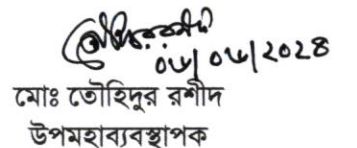 ০৬/০৬/২০২৪
মোঃ তৌহিদুর রশীদ
উপমহাব্যবস্থাপক